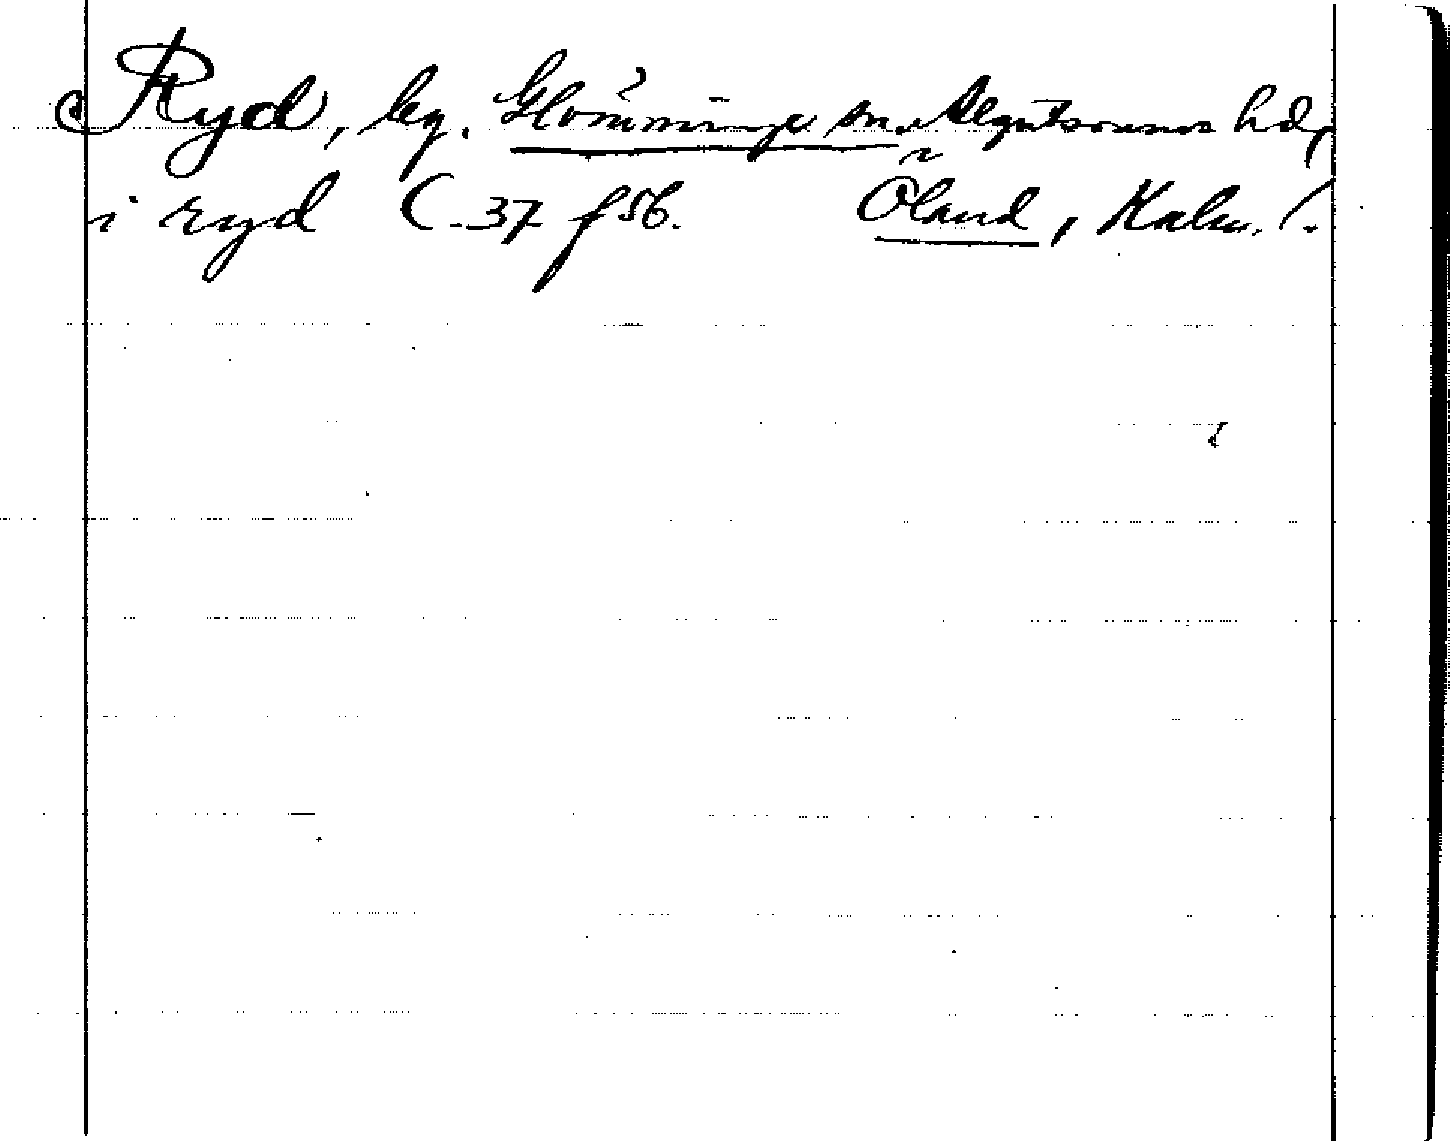 Ryd, by. Glömminge sn. Algutsrums hd,
i ryd C-37 f 56. Öland, Kalm. l.